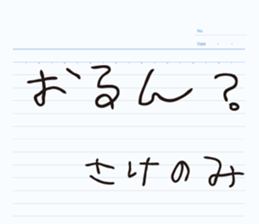 No.
Date
おるん?
さけのみ